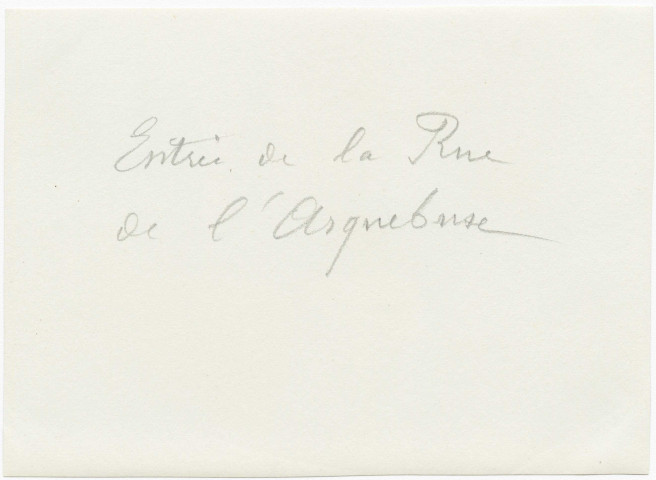 Entrée de la Rue
de l'Arquebuse